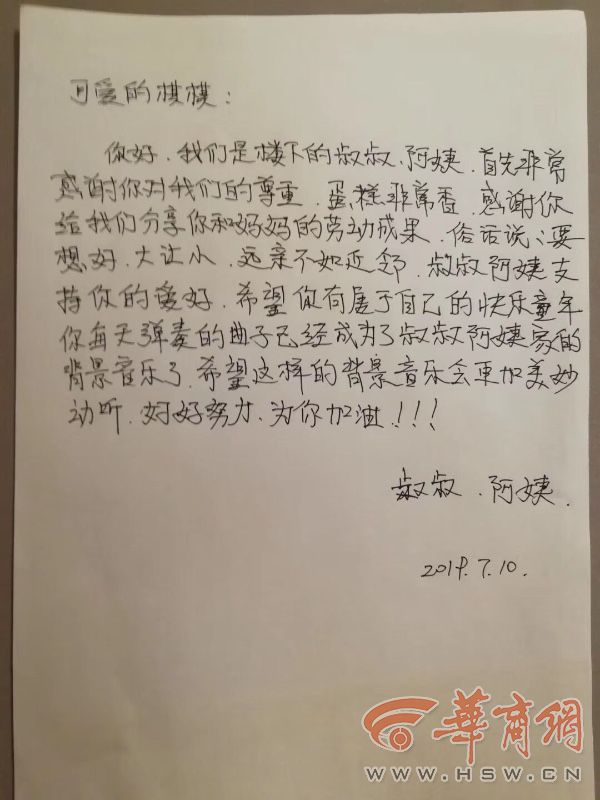 可爱的棋棋：
你好．我们是楼下的叔叔．阿姨．首先非常
感谢你对我们的尊重．蛋糕非常香．感谢你
给我们分享你和妈妈的劳动成果．俗话说：要
想好．大让小．远亲不如近邻．叔叔阿姨支
持你的爱好．希望你有属于自己的快乐童年
你每天弹奏的曲子已经成为了叔叔阿姨家的
背景音乐了．希望这样的背景音乐会更加美妙
动听．好好努力．为你加油！！！
叔叔．阿姨．
2019.7.10.
華商網
WWW.HSW.CN